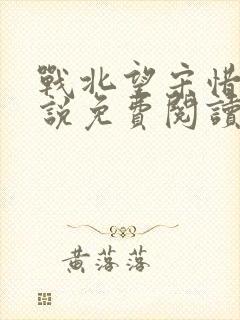 戰北望宋惜
說免費閱讀
黃落落